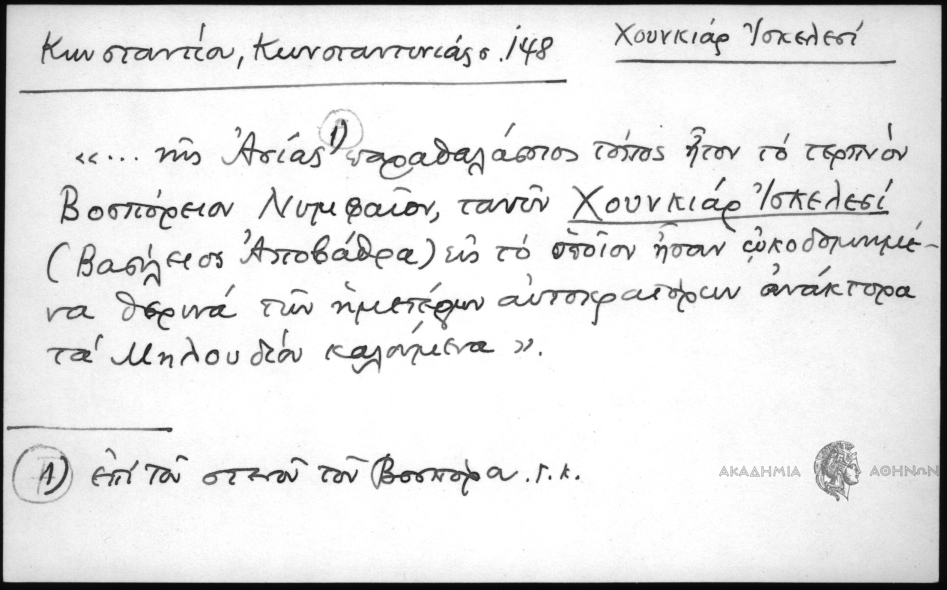 Κωνσταντίου, Κωνσταντινιάς σ. 148
Χουνκιάρ Ἰσκελεσί
«... τῆς Ἀσίας 1) παραθαλάσσιος τόπος ἦτον τὸ τερπνὸν
Βοσπόρειον Νυμφαῖον, τανῦν Χουνκιάρ Ἰσκελεσί
(Βασίλειος Ἀποβάθρα) εἰς τὸ ὁποῖον ἦσαν ᾠκοδομημέ-
να θερινά τῶν ἡμετέρων αὐτοκρατόρων ἀνάκτορα
τά Μηλουδίου καλούμενα».
1) ἐπί τοῦ στενοῦ τοῦ Βοσπόρου. Γ.Κ.
ΑΚΑΔΗΜΙΑ ΑΘΗΝΩΝ